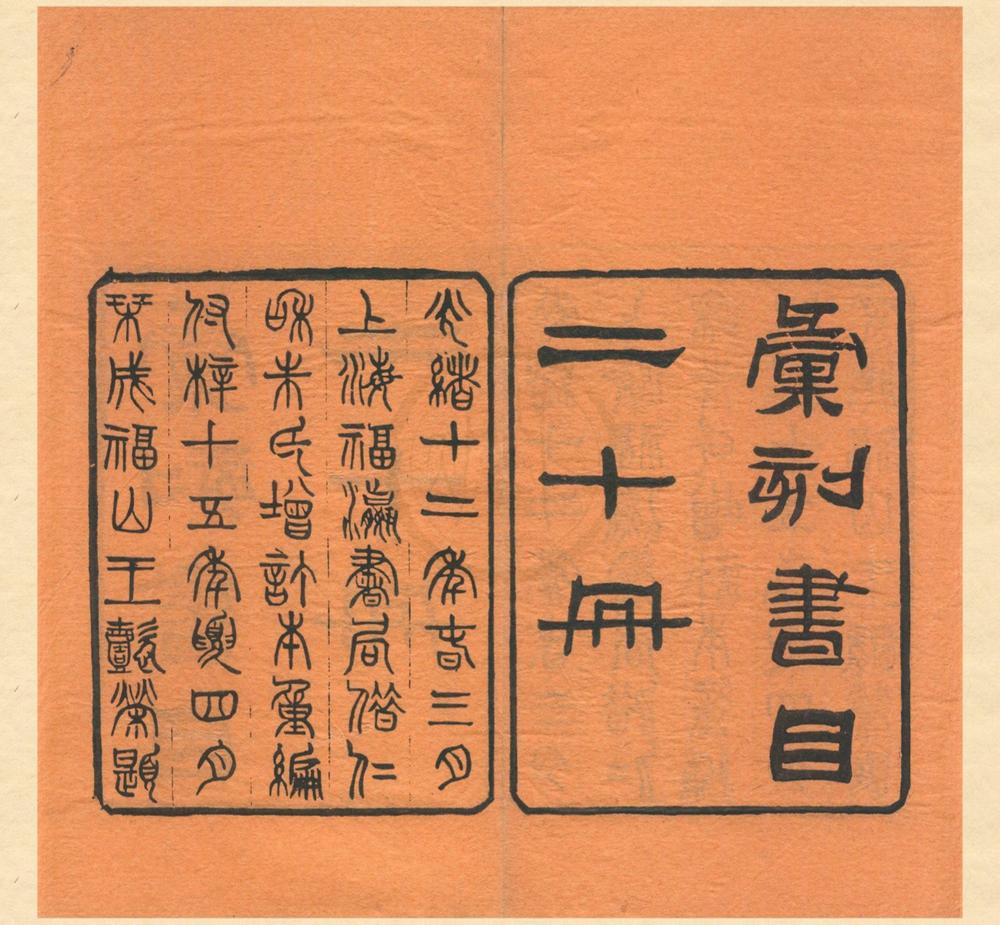 彙刻書目
二十冊
光緒十二年春三月
上海福瀛書局借仁
咊朱氏增訂本重編
付梓十五年夏四月
栞成福山王懿榮題